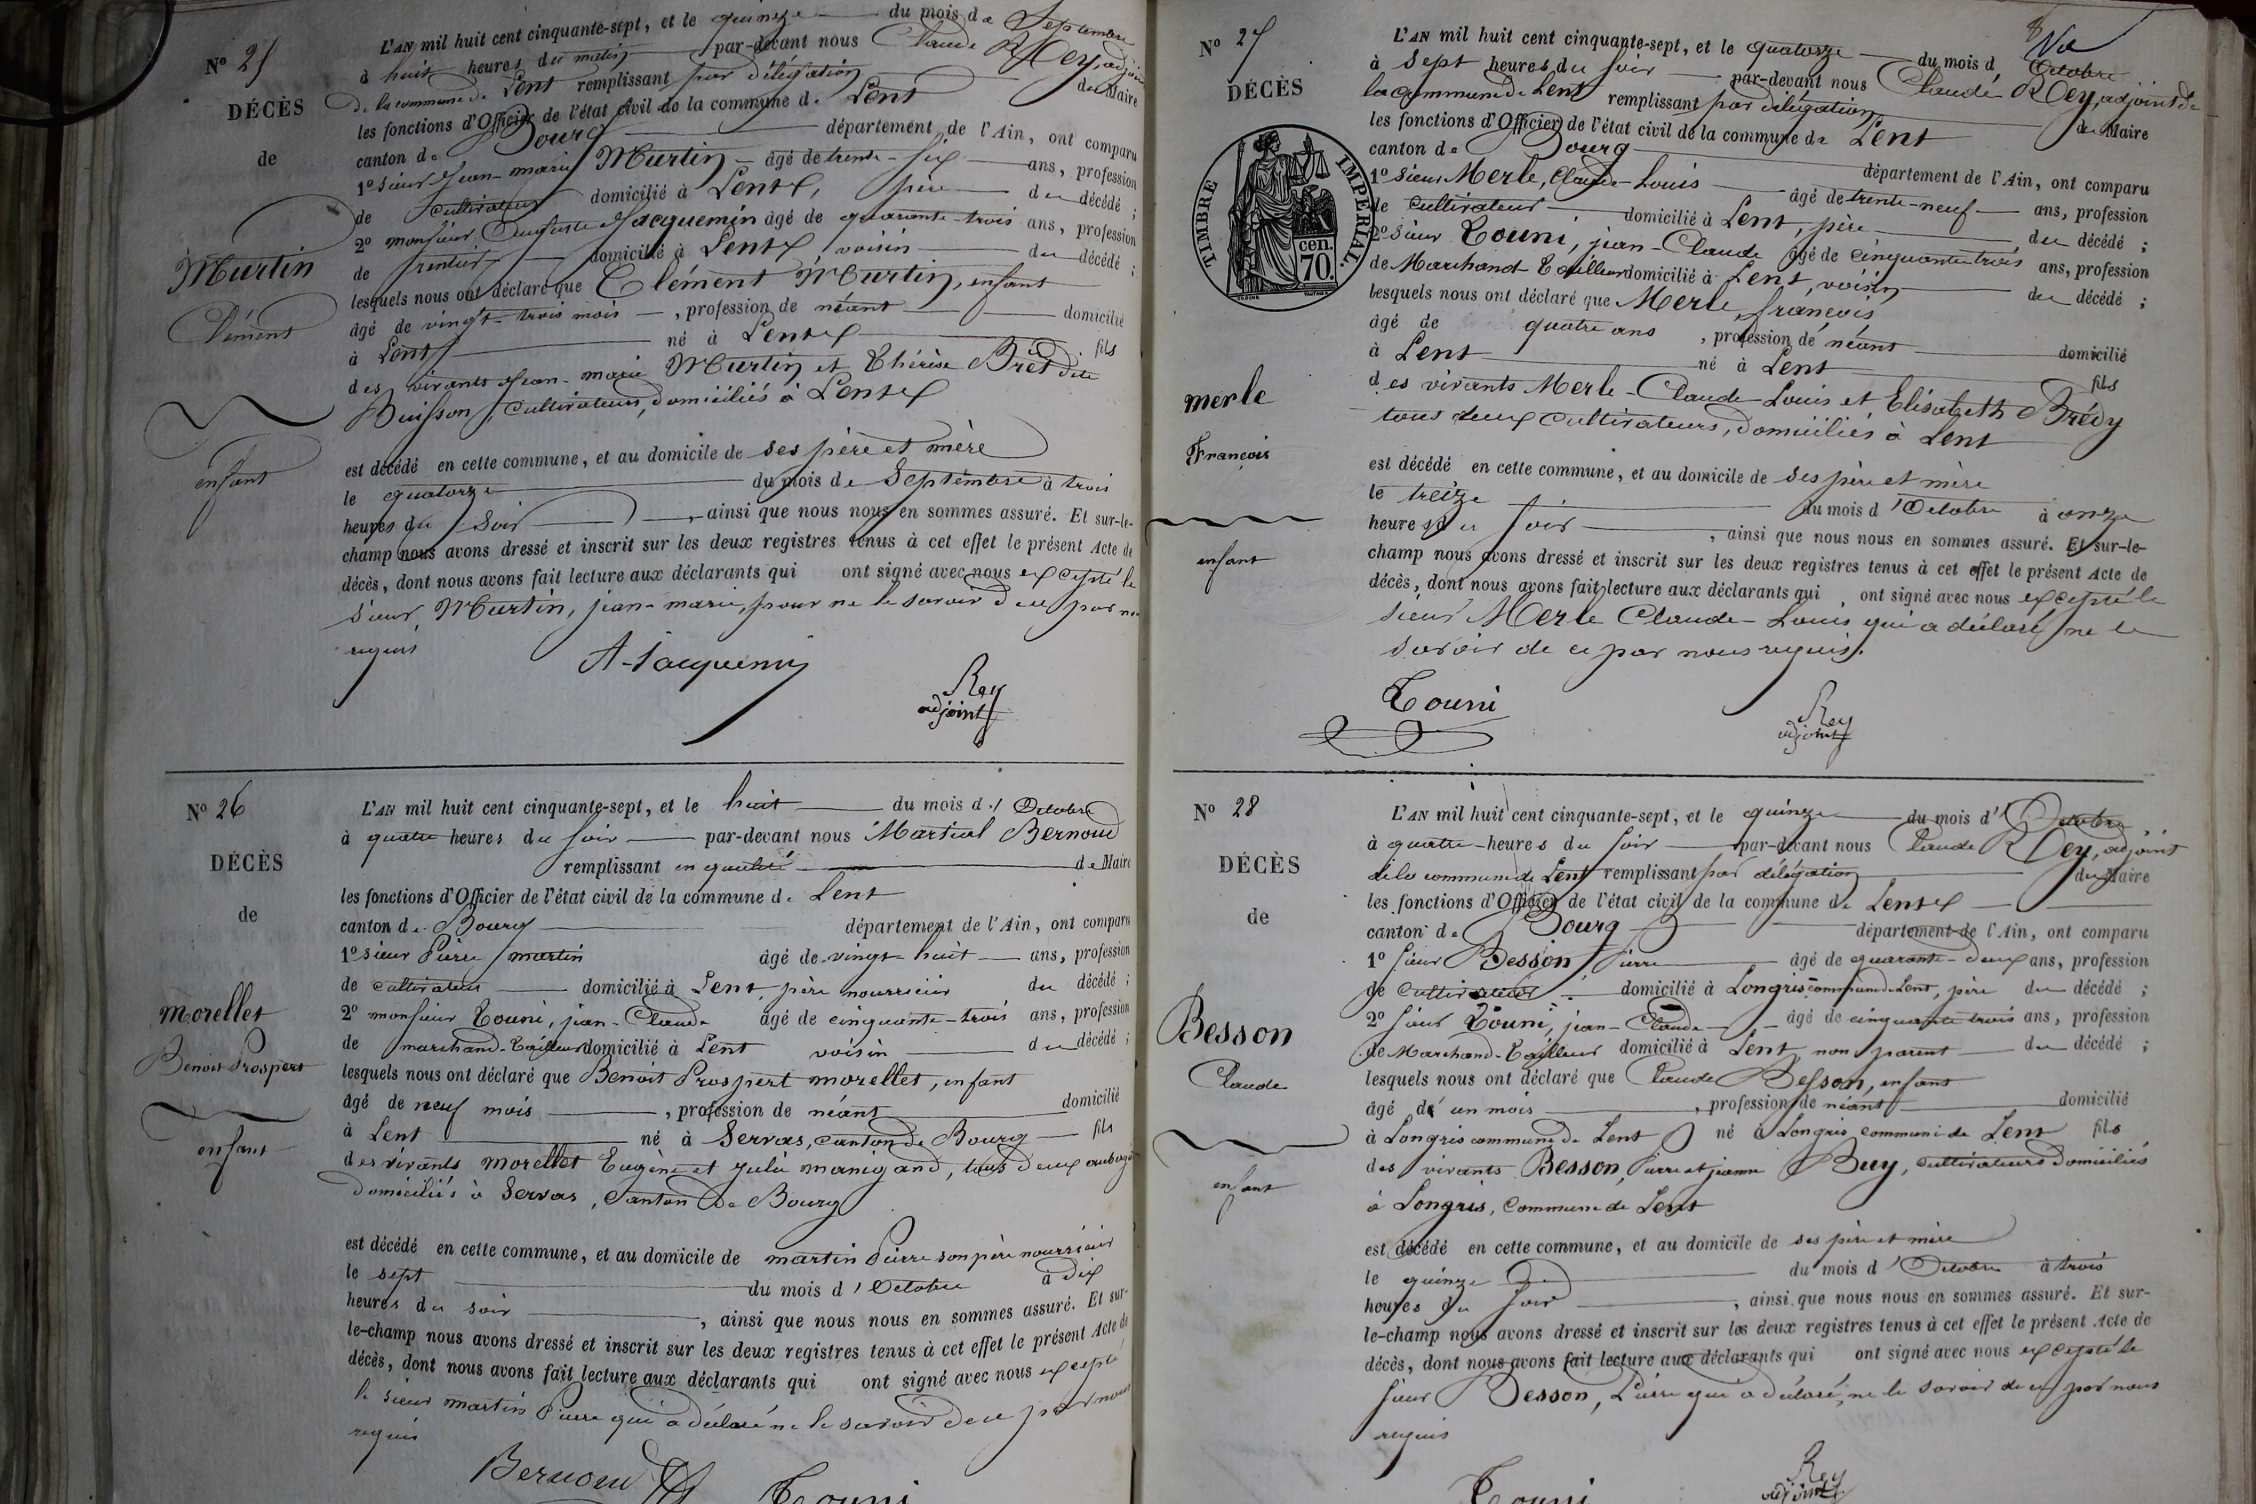 N° 25
DÉCÈS
de
Murtin
Clément
enfant
L'AN mil huit cent cinquante-sept, et le quinze du mois de Septembre
à huit heures du matin par-devant nous Claude Rey, adjoint
de la commune de Lent remplissant par délégation du Maire
les fonctions d'Officier de l'état civil de la commune de Lent
canton de Bourg département de l'Ain, ont comparu
1° sieur Jean-marie Murtin âgé de trente-six ans, profession
de cultivateur domicilié à Lent, père du décédé ;
2° monsieur Auguste Jacquemin âgé de quarante-trois ans, profession
de rentier domicilié à Lent voisin du décédé ;
lesquels nous ont déclaré que Clément Murtin, enfant
âgé de vingt-trois mois, profession de néant domicilié
à Lent né à Lent fils
des vivants Jean-marie Murtin et Thérèse Brét dite
Buisson, cultivateurs, domiciliés à Lent
est décédé en cette commune, et au domicile de ses père et mère
le quatorze du mois de Septembre à trois
heures du soir, ainsi que nous nous en sommes assuré. Et sur-le-
champ nous avons dressé et inscrit sur les deux registres tenus à cet effet le présent Acte de
décès, dont nous avons fait lecture aux déclarants qui ont signé avec nous excepté le
sieur Murtin, jean-marie, pour ne le savoir de ce par nous
requis
A-Jacquemin
Rey
adjoint
N° 26
DÉCÈS
de
Morellet
Benoit Prospert
enfant
L'AN mil huit cent cinquante-sept, et le huit du mois d'Octobre
à quatre heures du soir par-devant nous Martial Bernoud
remplissant en qualité de Maire
les fonctions d'Officier de l'état civil de la commune de Lent
canton de Bourg département de l'Ain, ont comparu
1° sieur Pierre martin âgé de vingt huit ans, profession
de cultivateur domicilié à Lent, père nourricier du décédé ;
2° monsieur Touni, jean-Claude âgé de cinquante-trois ans, profession
de marchand-Tailleur domicilié à Lent voisin du décédé ;
lesquels nous ont déclaré que Benoit Prospert morellet, enfant
âgé de neuf mois, profession de néant domicilié
à Lent né à Servas, canton de Bourg fils
des vivants morellet Eugène et Julie manigand, tous deux
domiciliés à Servas, Canton de Bourg
est décédé en cette commune, et au domicile de martin Pierre son père nourricier
le sept du mois d'Octobre à dix
heures du soir, ainsi que nous nous en sommes assuré. Et sur-
le-champ nous avons dressé et inscrit sur les deux registres tenus à cet effet le présent Acte de
décès, dont nous avons fait lecture aux déclarants qui ont signé avec nous excepté
le sieur martin Pierre qui a déclaré ne le savoir de ce par nous
requis
Bernoud
Touni
N° 27
DÉCÈS
TIMBRE IMPÉRIAL.
cen. 70.
merle
François
enfant
L'AN mil huit cent cinquante-sept, et le quatorze du mois d'Octobre
à sept heures du soir par-devant nous Claude Rey, adjoint de
la commune de Lent remplissant par délégation du Maire
les fonctions d'Officier de l'état civil de la commune de Lent
canton de Bourg département de l'Ain, ont comparu
1° sieur Merle, Claude-Louis âgé de trente-neuf ans, profession
de cultivateur domicilié à Lent, père du décédé ;
2° sieur Touni, jean-Claude âgé de cinquante trois ans, profession
de Marchand-Tailleur domicilié à Lent, voisin du décédé ;
lesquels nous ont déclaré que Merle, françois
âgé de quatre ans, profession de néant domicilié
à Lent né à Lent fils
des vivants Merle-Claude-Louis et Elisabeth Brédy
tous deux cultivateurs, domiciliés à Lent
est décédé en cette commune, et au domicile de ses père et mère
le treize du mois d'Octobre à onze
heures du soir, ainsi que nous nous en sommes assuré. Et sur-le-
champ nous avons dressé et inscrit sur les deux registres tenus à cet effet le présent Acte de
décès, dont nous avons fait lecture aux déclarants qui ont signé avec nous excepté le
sieur Merle Claude-Louis qui a déclaré ne le
savoir de ce par nous requis.
Touni
Rey
adjoint
N° 28
DÉCÈS
de
Besson
Claude
enfant
L'AN mil huit cent cinquante-sept, et le quinze du mois d'Octobre
à quatre heures du soir par-devant nous Claude Rey, adjoint
de la commune de Lent remplissant par délégation du Maire
les fonctions d'Officier de l'état civil de la commune de Lent
canton de Bourg département de l'Ain, ont comparu
1° sieur Besson, Pierre âgé de quarante-deux ans, profession
de cultivateur domicilié à Longris commune de Lent, père du décédé ;
2° sieur Touni, jean-Claude âgé de cinquante trois ans, profession
de Marchand-Tailleur domicilié à Lent non parent du décédé ;
lesquels nous ont déclaré que Claude Besson, enfant
âgé d'un mois, profession de néant domicilié
à Longris commune de Lent né à Longris, commune de Lent fils
des vivants Besson, Pierre et jeanne Buy, cultivateurs domiciliés
à Longris, Commune de Lent
est décédé en cette commune, et au domicile de ses père et mère
le quinze du mois d'Octobre à trois
heures du soir, ainsi que nous nous en sommes assuré. Et sur-
le-champ nous avons dressé et inscrit sur les deux registres tenus à cet effet le présent Acte de
décès, dont nous avons fait lecture aux déclarants qui ont signé avec nous excepté le
sieur Besson, Pierre qui a déclaré ne le savoir de ce par nous
requis
Touni
Rey
adjoint